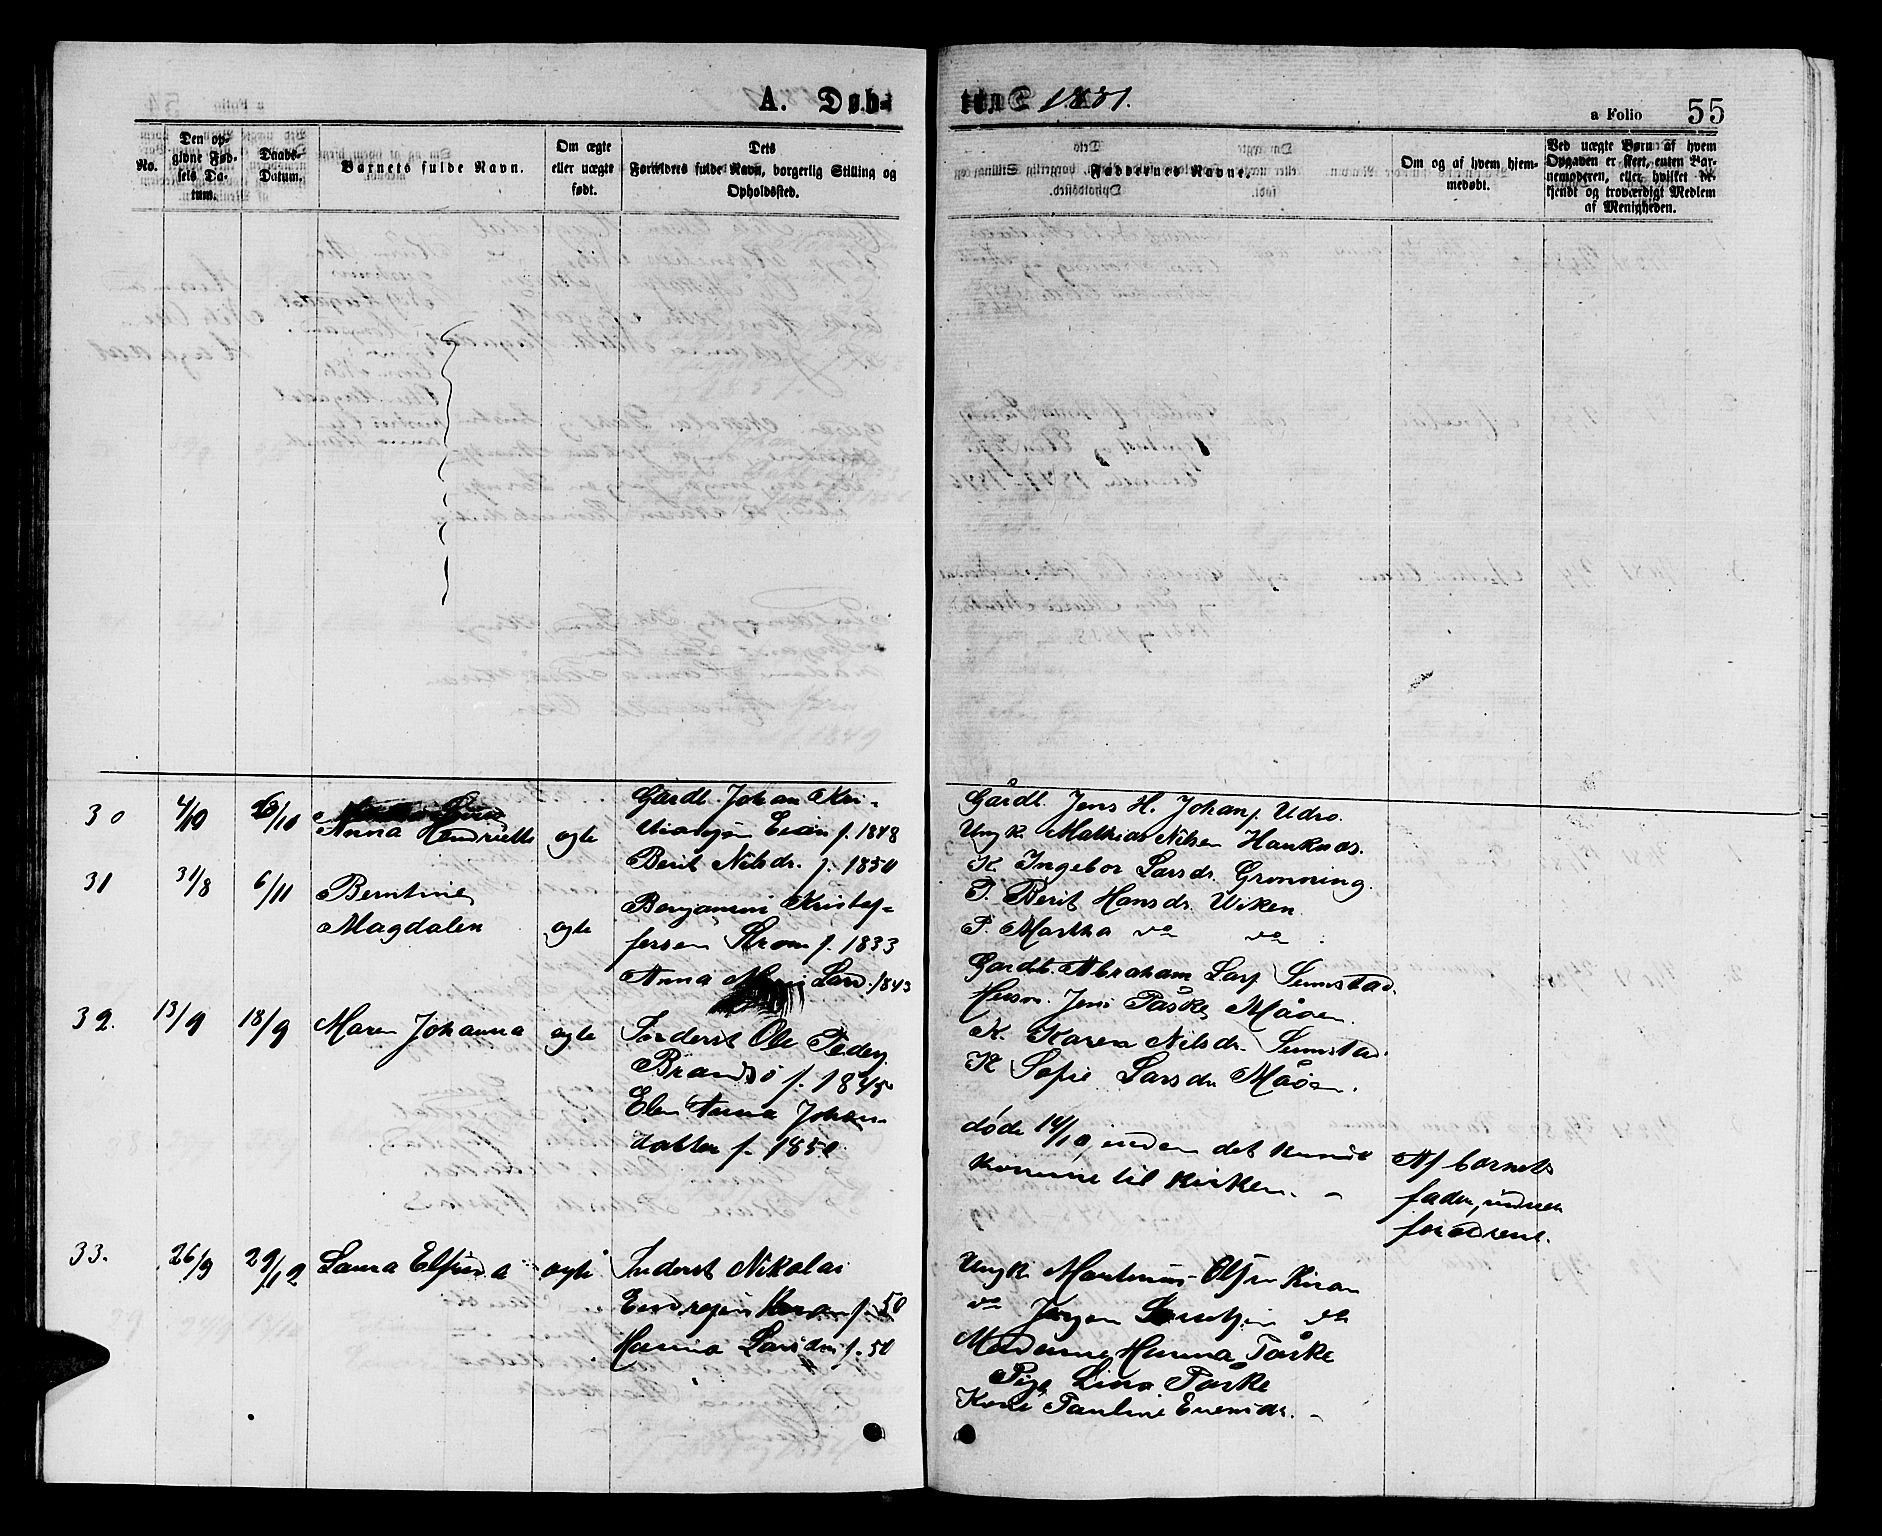 A. Døb-
te. 1881.
a Folio 55
No.
Den op-
givne Fød-
sels Da-
tum.
Daabs-
Datum.
Barnets fulde Navn.
Om ægte
eller uægte
født.
Dets
Forældres fulde Navn, borgerlig Stilling og
Opholdssted.
Faddernes Navne.
Om og af hvem hjem-
medøbt.
Ved uægte Børn af hvem
Opgaven er skeet, enten Bar-
nemoderen, eller hvilket be-
kjendt og troværdigt Medlem
af Menigheden.
30 4/10
Anna Henriette ægte
Gårdb. Johan Kri-
f. 1848
Berit Nilsdr. f. 1850
Gårdb. Jens H. Johans. Udrø.
Ungk. Mathias Nilsen Hanknes.
K. Ingebor Larsdr. Grønning.
P. Berit Hansdr. Viken.
P. Martha do do.
31 31/8 6/11 Berntine
Magdalen ægte
Benjamin Kristof-
fersen Strøm f. 1833
Anna Lars. 1843
Gårdb. Abraham Lars. Sumstad.
Husm. Jens Påske Måøen.
K. Karen Nilsdr. Sumstad.
K. Sofie Larsdr. Måøen.
32. 13/9 18/9 Maren Johanna ægte
Inderst Ole Peders.
Brandsø f. 1845
Elen Anna Johan-
datter f. 1850
døde 14/10, inden det kunde
komme til kirken. -
Af barnets
fader, inden
forældrene.
33. 26/9 29/12 Laura Elfrida ægte
Inderst Nikolai
f. 50
Hanna Larsdr. f. 50
Ungk. Martinus Olsen Kiran
do Jørgen Lorentsen do
Madamme Hanna Påske
Pige Lina Påske
Kone Pauline Evensdr. -